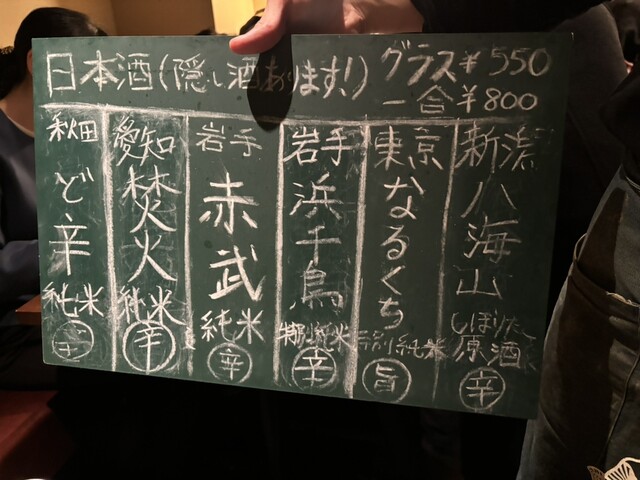 日本酒(隠し酒あります!)
グラス¥550
一合¥800
新潟
八海山
しぼりたて
原酒
辛
東京
なるくち
特別純米
旨
岩手
浜千鳥
特別純米
辛
岩手
赤武
純米
辛
愛知
焚火
純米
辛
秋田
ど辛
純米